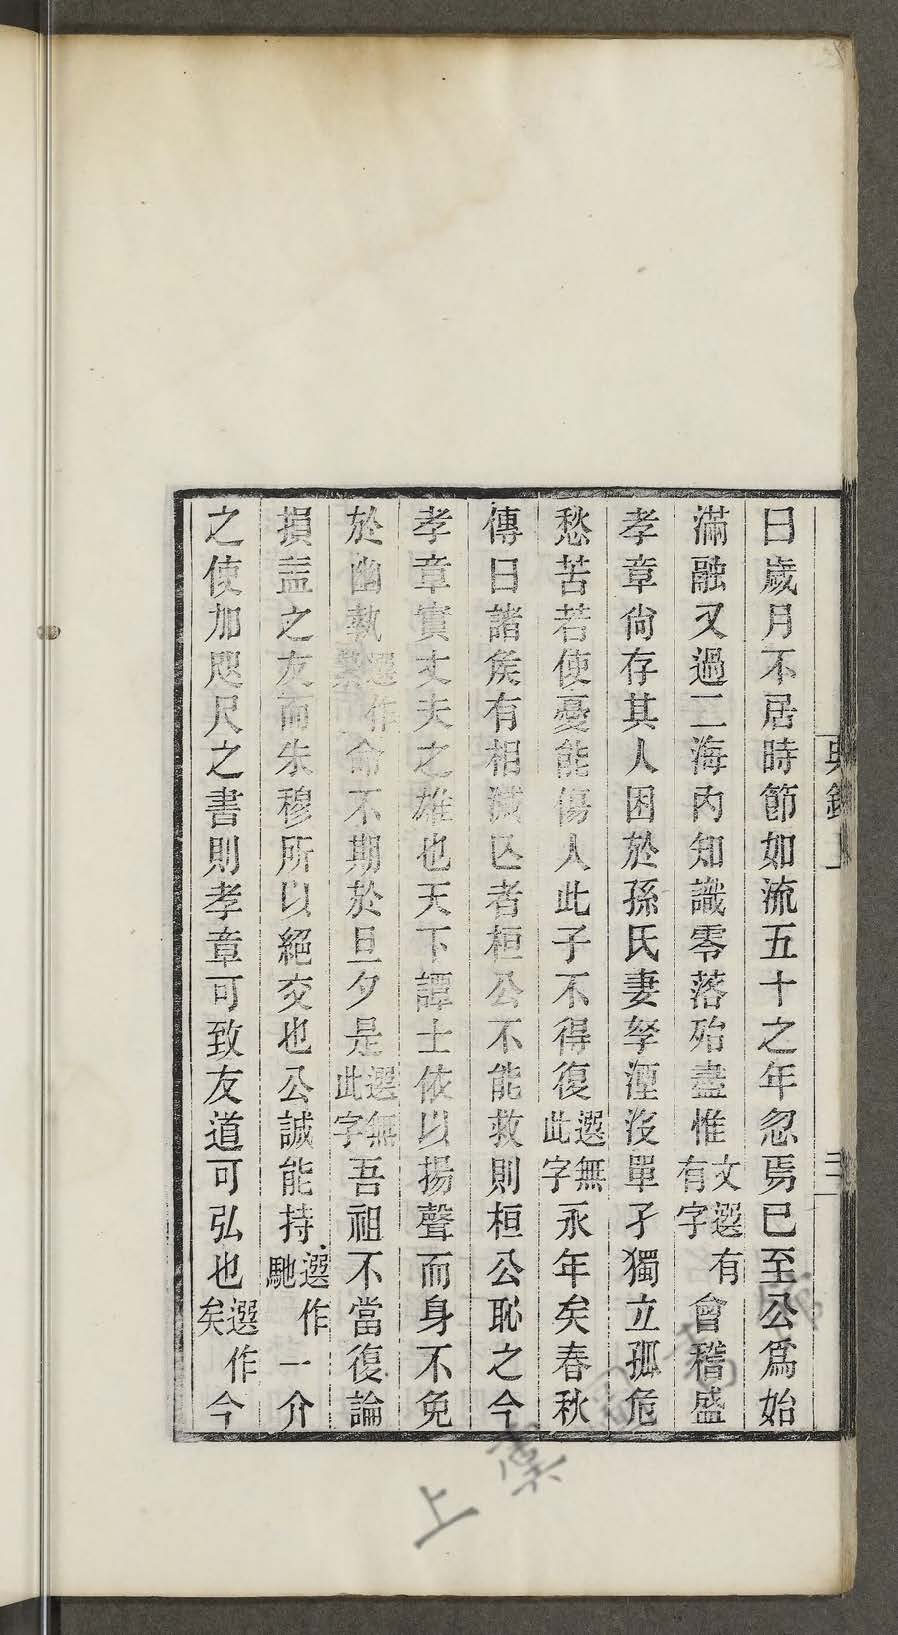 曰歲月不居時節如流五十之年忽焉已至公爲始
滿融又過二海內知識零落殆盡惟文選有有字會稽盛
孝章尙存其人困於孫氏妻孥湮沒單孑獨立孤危
愁苦若使憂能傷人此子不得復選無此字永年矣春秋
傳曰諸矦有相滅亾者桓公不能救則桓公恥之今
孝章實丈夫之雄也天下譚士依以揚聲而身不免
於幽執選作縶命不期於旦夕是選無此字吾祖不當復論
損益之友而朱穆所以絕交也公誠能持選作馳一介
之使加咫尺之書則孝章可致友道可弘也選作矣今
典錄上
三
上虞